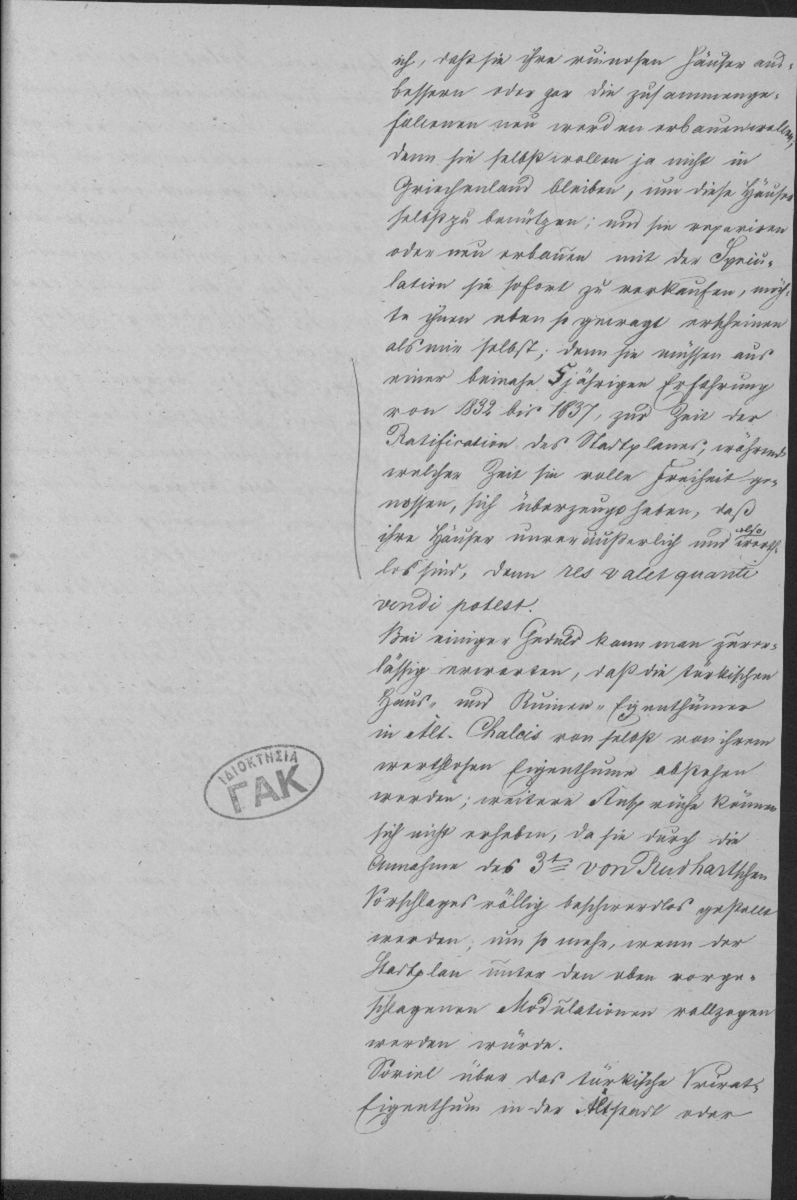 ich, daß sie ihre ruinosen Häuser aus-
bessern oder gar die zusammenge-
fallenen neu werden erbauen wollen,
denn sie selbst wollen ja nicht in
Griechenland bleiben, um diese Häuser
selbst zu benützen; und sie repariren
oder neu erbauen mit der Specu-
lation sie sofort zu verkaufen, möch-
te ihnen eben so gewagt erscheinen
als mir selbst; denn sie müssen aus
einer beinahe 5jährigen Erfahrung
von 1832 bis 1837, zur Zeit der
Ratification des Stadtplanes, während
welcher Zeit sie volle Freiheit ge-
nossen, sich überzeugt haben, daß
ihre Häuser unveräußerlich und also werth-
los sind, denn res valet quanti
vendi potest.
Bei einiger Geduld kann man zuver-
lässig erwarten, daß die türkischen
Haus- und Ruinen-Eigenthümer
in Alt-Chalcis von selbst von ihrem
werthlosen Eigenthume abstehen
werden; weitere Ansprüche können
sich nicht erheben, da sie durch die
Annahme des 3ts von Rudhartschen
Vorschlages völlig beschwerdlos gestellt
werden; um so mehr, wenn der
Stadtplan unter den oben vorge-
schlagenen Modulationen vollzogen
werden würde.
Soviel über das türkische Privat-
Eigenthum in der Altstadt oder
ΙΔΙΟΚΤΗΣΙΑ
ΓΑΚ